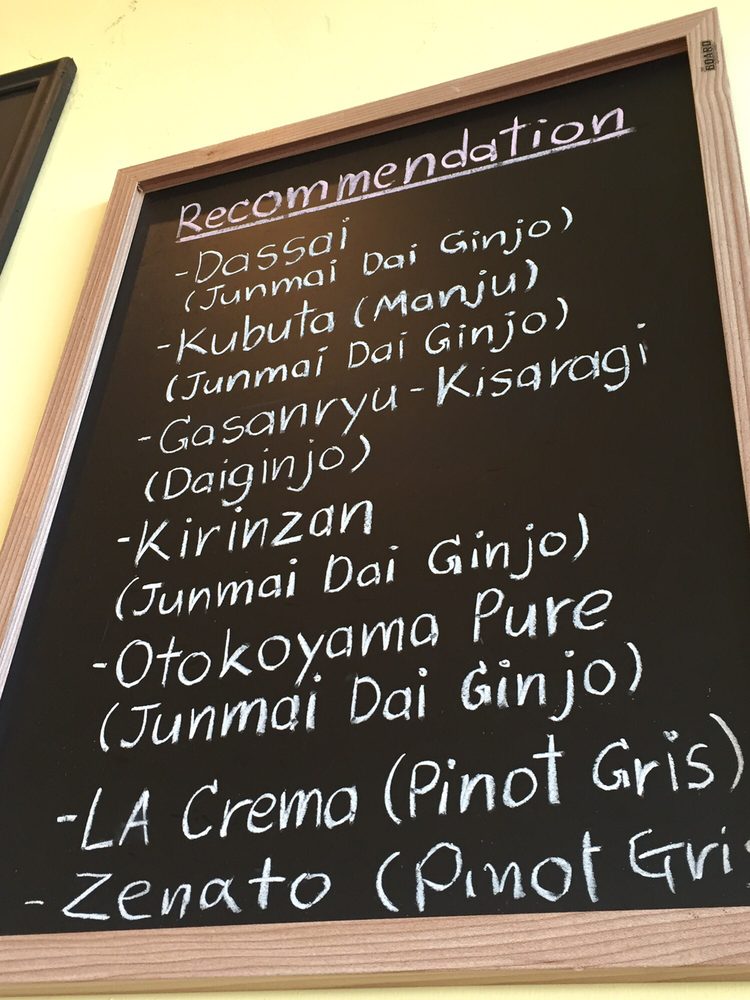 BOARD
Recommendation
-Dassai
(Junmai Dai Ginjo)
-Kubuta (Manju)
(Junmai Dai Ginjo)
-Gasanryu-Kisaragi
(Daiginjo)
-Kirinzan
(Junmai Dai Ginjo)
-Otokoyama Pure
(Junmai Dai Ginjo)
-LA Crema (Pinot Gris)
-Zenato (Pinot Gri